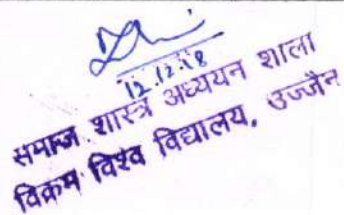 12.12.18
समाज शास्त्र अध्ययन शाला
विक्रम विश्व विद्यालय, उज्जैन